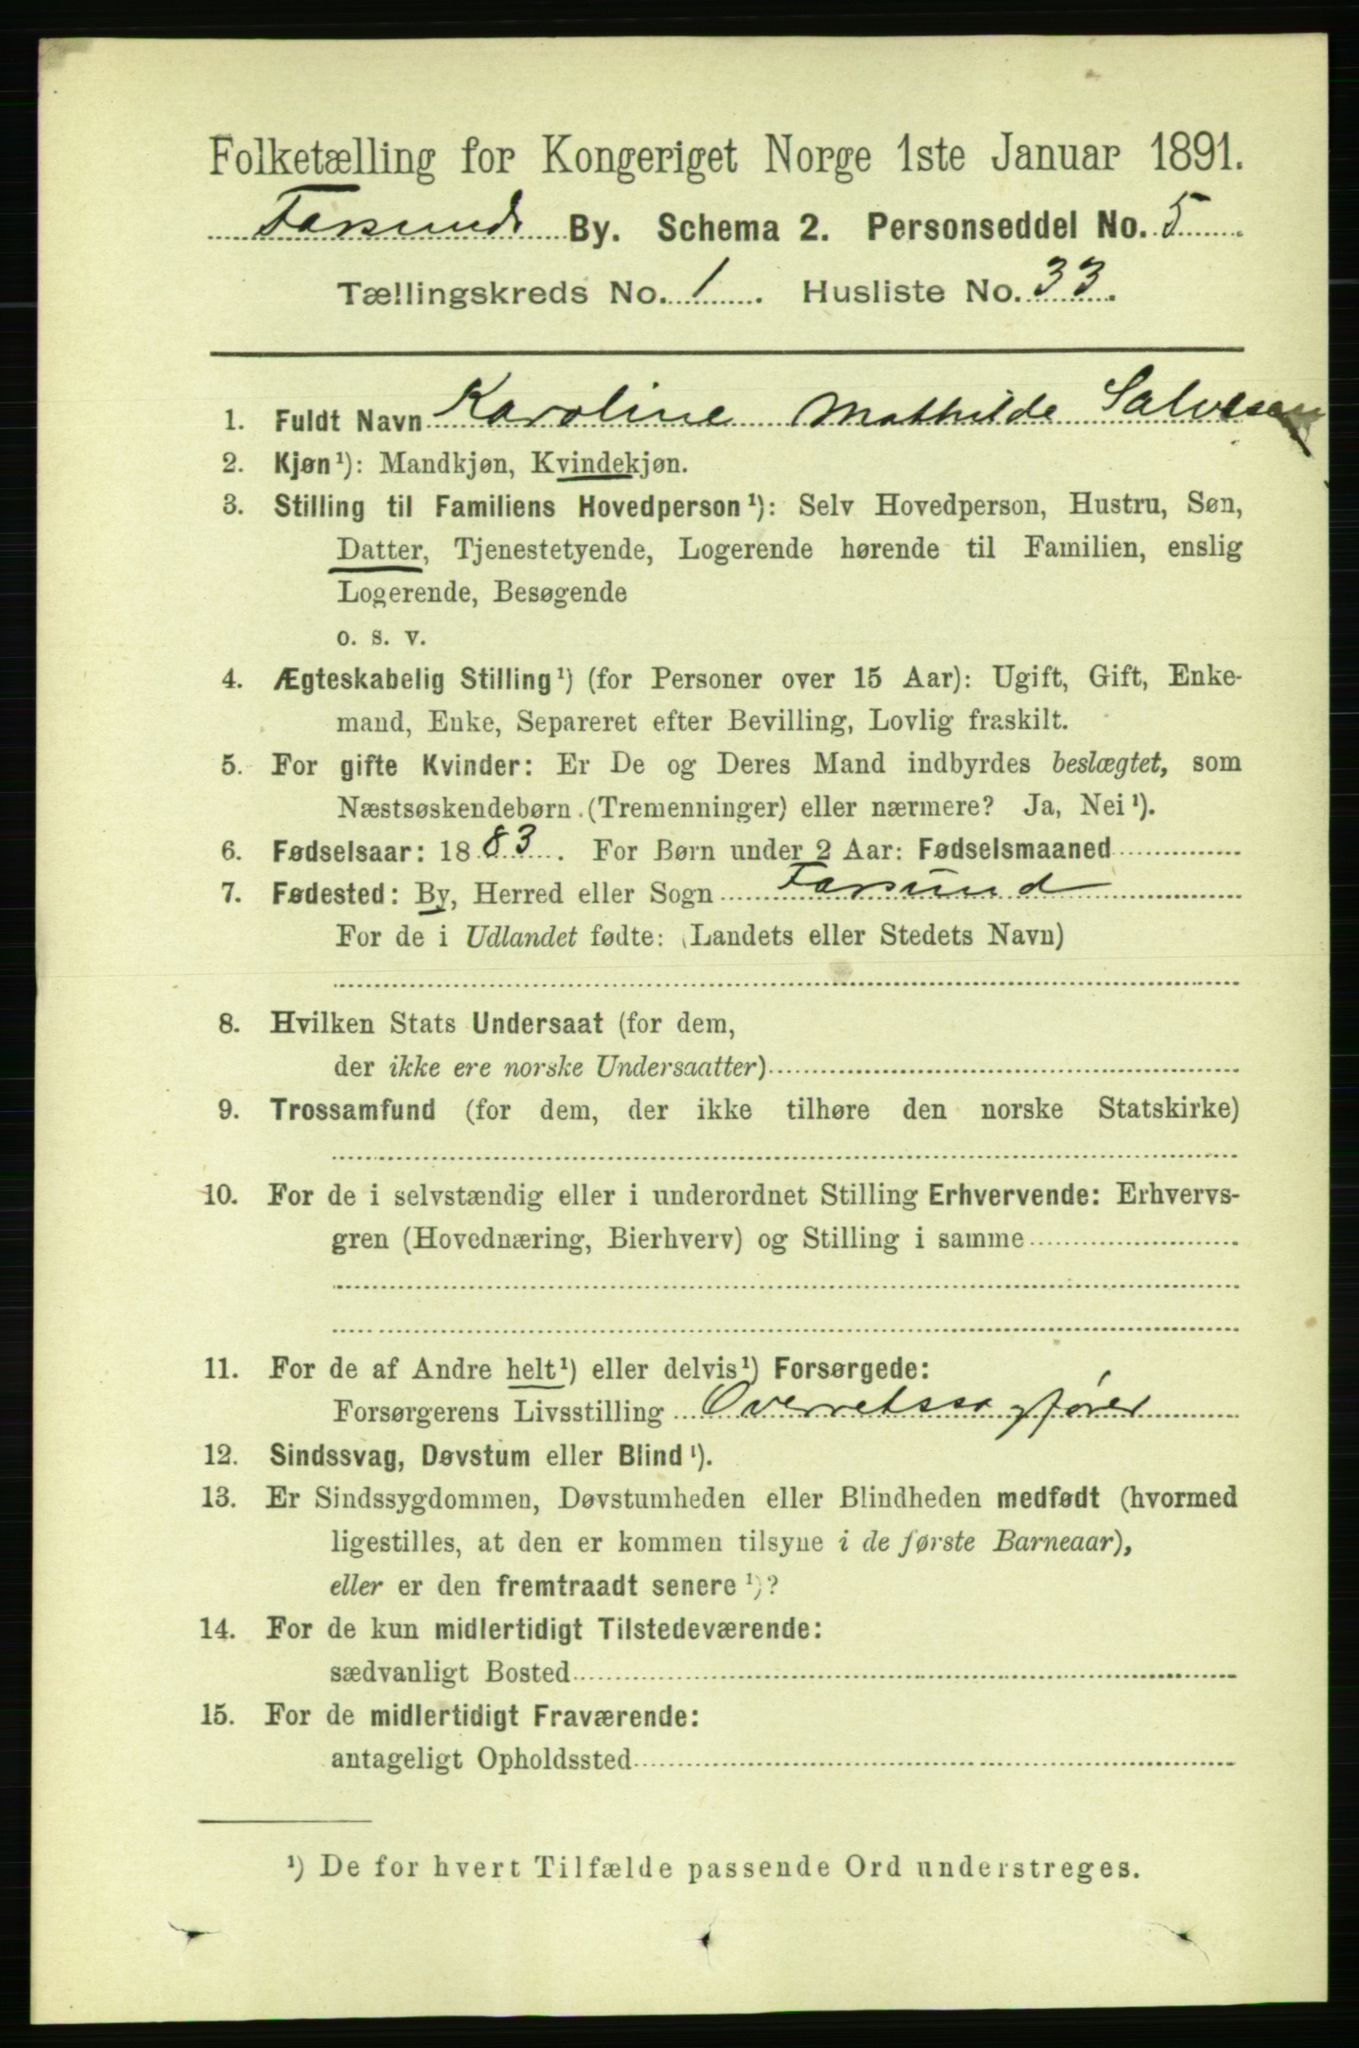 Folketælling for Kongeriget Norge 1ste Januar 1891.
Farsund By. Schema 2. Personseddel No. 5
Tællingskreds No. 1. Husliste No. 33.
1. Fuldt Navn Karoline Mathilde Salvesen
2. Kjøn¹): Mandkjøn, Kvindekjøn.
3. Stilling til Familiens Hovedperson¹): Selv Hovedperson, Hustru, Søn,
Datter, Tjenestetyende, Logerende hørende til Familien, enslig
Logerende, Besøgende
o. s. v.
4. Ægteskabelig Stilling¹) (for Personer over 15 Aar): Ugift, Gift, Enke-
mand, Enke, Separeret efter Bevilling, Lovlig fraskilt.
5. For gifte Kvinder: Er De og Deres Mand indbyrdes beslægtet, som
Næstsøskendebørn (Tremenninger) eller nærmere? Ja, Nei¹).
6. Fødselsaar: 1883. For Børn under 2 Aar: Fødselsmaaned
7. Fødested: By, Herred eller Sogn Farsund
For de i Udlandet fødte: (Landets eller Stedets Navn)
8. Hvilken Stats Undersaat (for dem,
der ikke ere norske Undersaatter)
9. Trossamfund (for dem, der ikke tilhøre den norske Statskirke)
10. For de i selvstændig eller i underordnet Stilling Erhvervende: Erhvervs-
gren (Hovednæring, Bierhverv) og Stilling i samme
11. For de af Andre helt¹) eller delvis¹) Forsørgede:
Forsørgerens Livsstilling Overretssagfører
12. Sindssvag, Døvstum eller Blind¹).
13. Er Sindssygdommen, Døvstumheden eller Blindheden medfødt (hvormed
ligestilles, at den er kommen tilsyne i de første Barneaar),
eller er den fremtraadt senere¹)?
14. For de kun midlertidigt Tilstedeværende:
sædvanligt Bosted
15. For de midlertidigt Fraværende:
antageligt Opholdssted
¹) De for hvert Tilfælde passende Ord understreges.